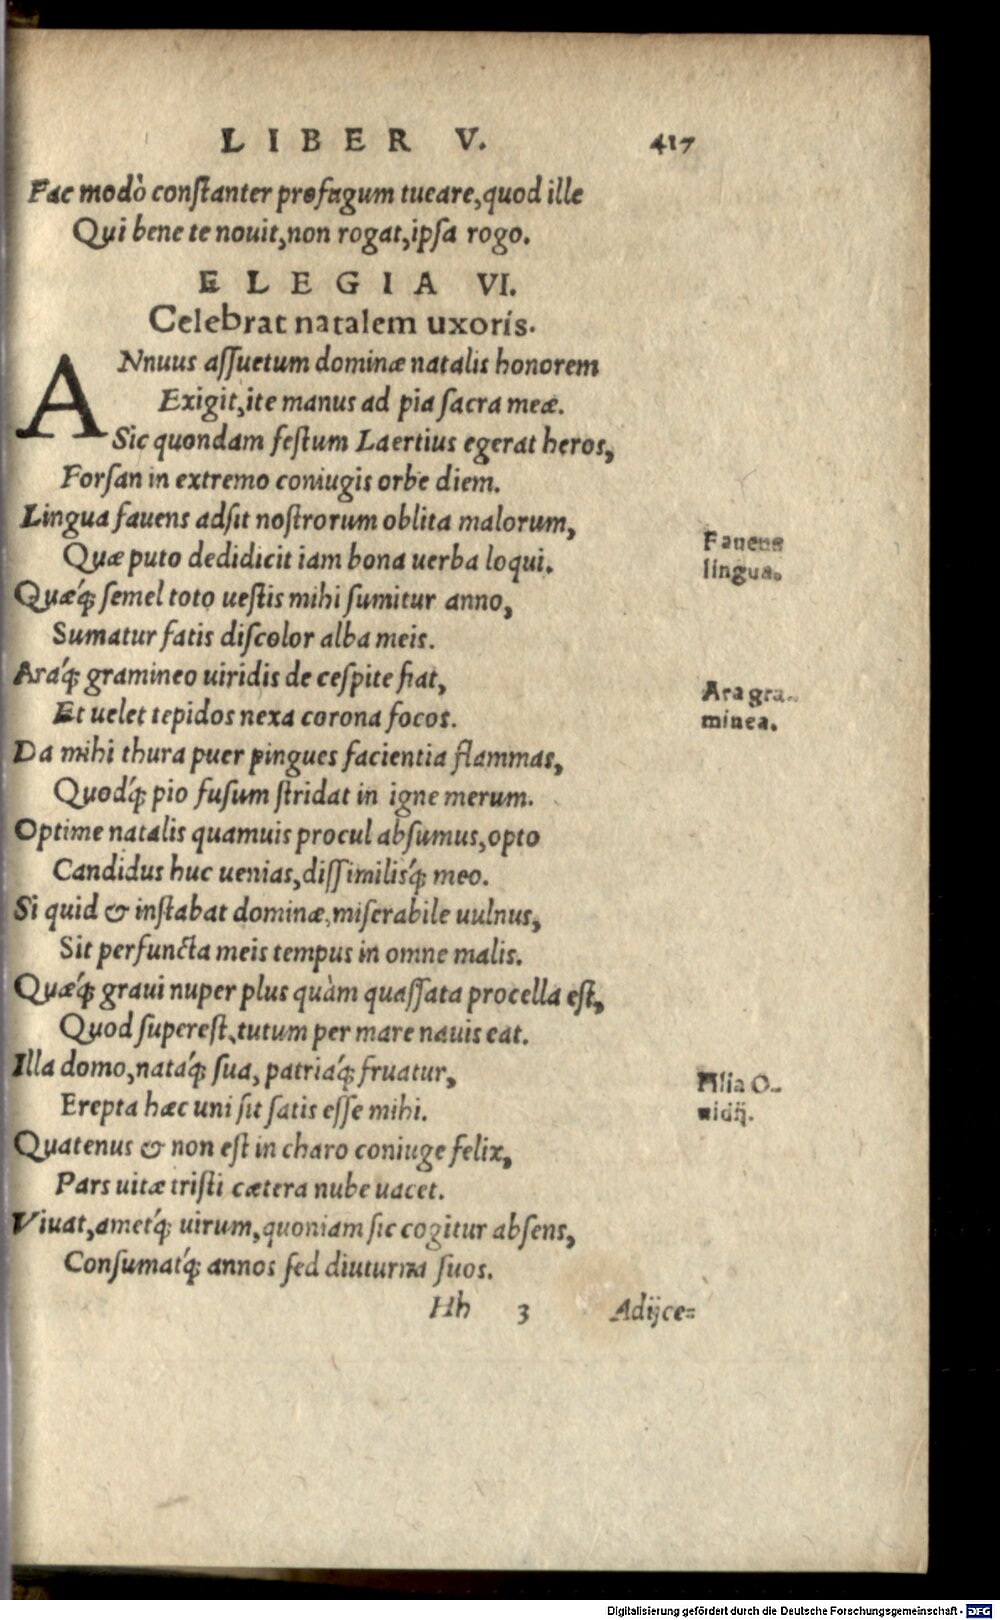 LIBER V. 417
Fac modò conſtanter profugum tueare, quod ille
Qui bene te nouit, non rogat, ipſa rogo.
ELEGIA VI.
Celebrat natalem uxoris.
ANnuus aſſuetum dominæ natalis honorem
Exigit, ite manus ad pia ſacra meæ.
Sic quondam feſtum Laertius egerat heros,
Forſan in extremo coniugis orbe diem.
Lingua fauens adſit noſtrorum oblita malorum,
Quæ puto dedidicit iam bona uerba loqui.
Fauens
lingua.
Quæq́; ſemel toto ueſtis mihi ſumitur anno,
Sumatur fatis diſcolor alba meis.
Araq́; gramineo uiridis de ceſpite fiat,
Et uelet tepidos nexa corona focos.
Ara gra-
minea.
Da mihi thura puer pingues facientia flammas,
Quodq́; pio fuſum ſtridat in igne merum.
Optime natalis quamuis procul abſumus, opto
Candidus huc uenias, diſſimilisq́; meo.
Si quid & inſtabat dominæ, miſerabile uulnus,
Sit perfuncta meis tempus in omne malis.
Quæq́; graui nuper plus quàm quaſſata procella eſt,
Quod ſupereſt, tutum per mare nauis eat.
Illa domo, nataq́; ſua, patriaq́; fruatur,
Erepta hæc uni ſit ſatis eſſe mihi.
Filia O-
uidij.
Quatenus & non eſt in charo coniuge felix,
Pars uitæ triſti cætera nube uacet.
Viuat, ametq́; uirum, quoniam ſic cogitur abſens,
Conſumatq́; annos ſed diuturna ſuos.
Hh 3 Adijce=
Digitalisierung gefördert durch die Deutsche Forschungsgemeinschaft - DFG